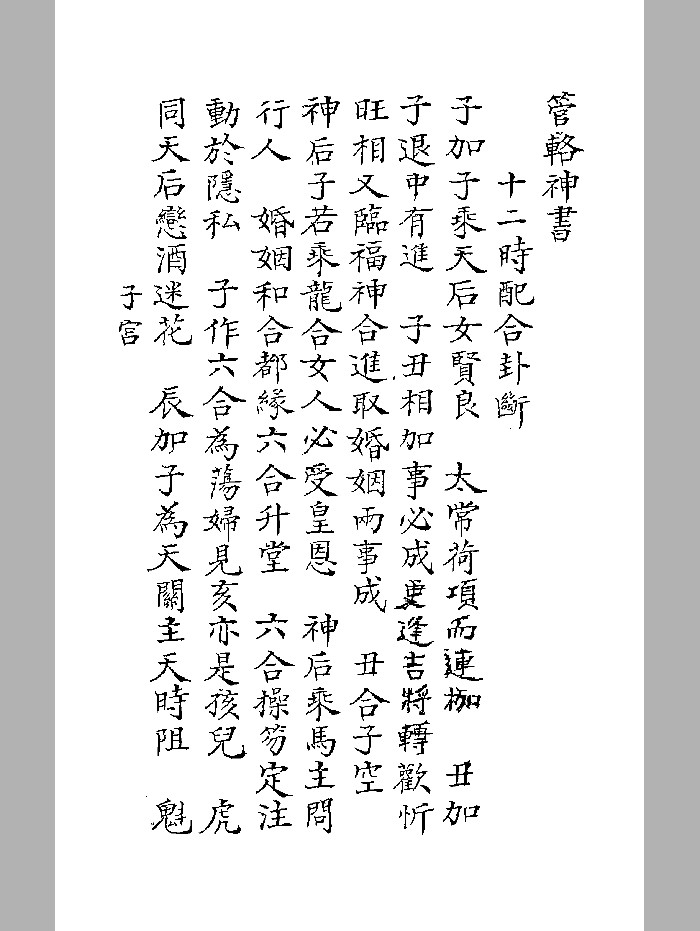 管輅神書
十二時配合卦斷
子加子乘天后女賢良　太常荷項而連枷　丑加
子退中有進　子丑相加事必成更逢吉將轉歡忻
旺相又臨福神合進取婚姻兩事成　丑合子空
神后子若乘龍合女人必受皇恩　神后乘馬主問
行人　婚姻和合都緣六合升堂　六合操笏定注
動於隱私　子作六合為蕩婦見亥亦是孩兒　虎
同天后戀酒迷花　辰加子為天關主天時阻　魁
子宮